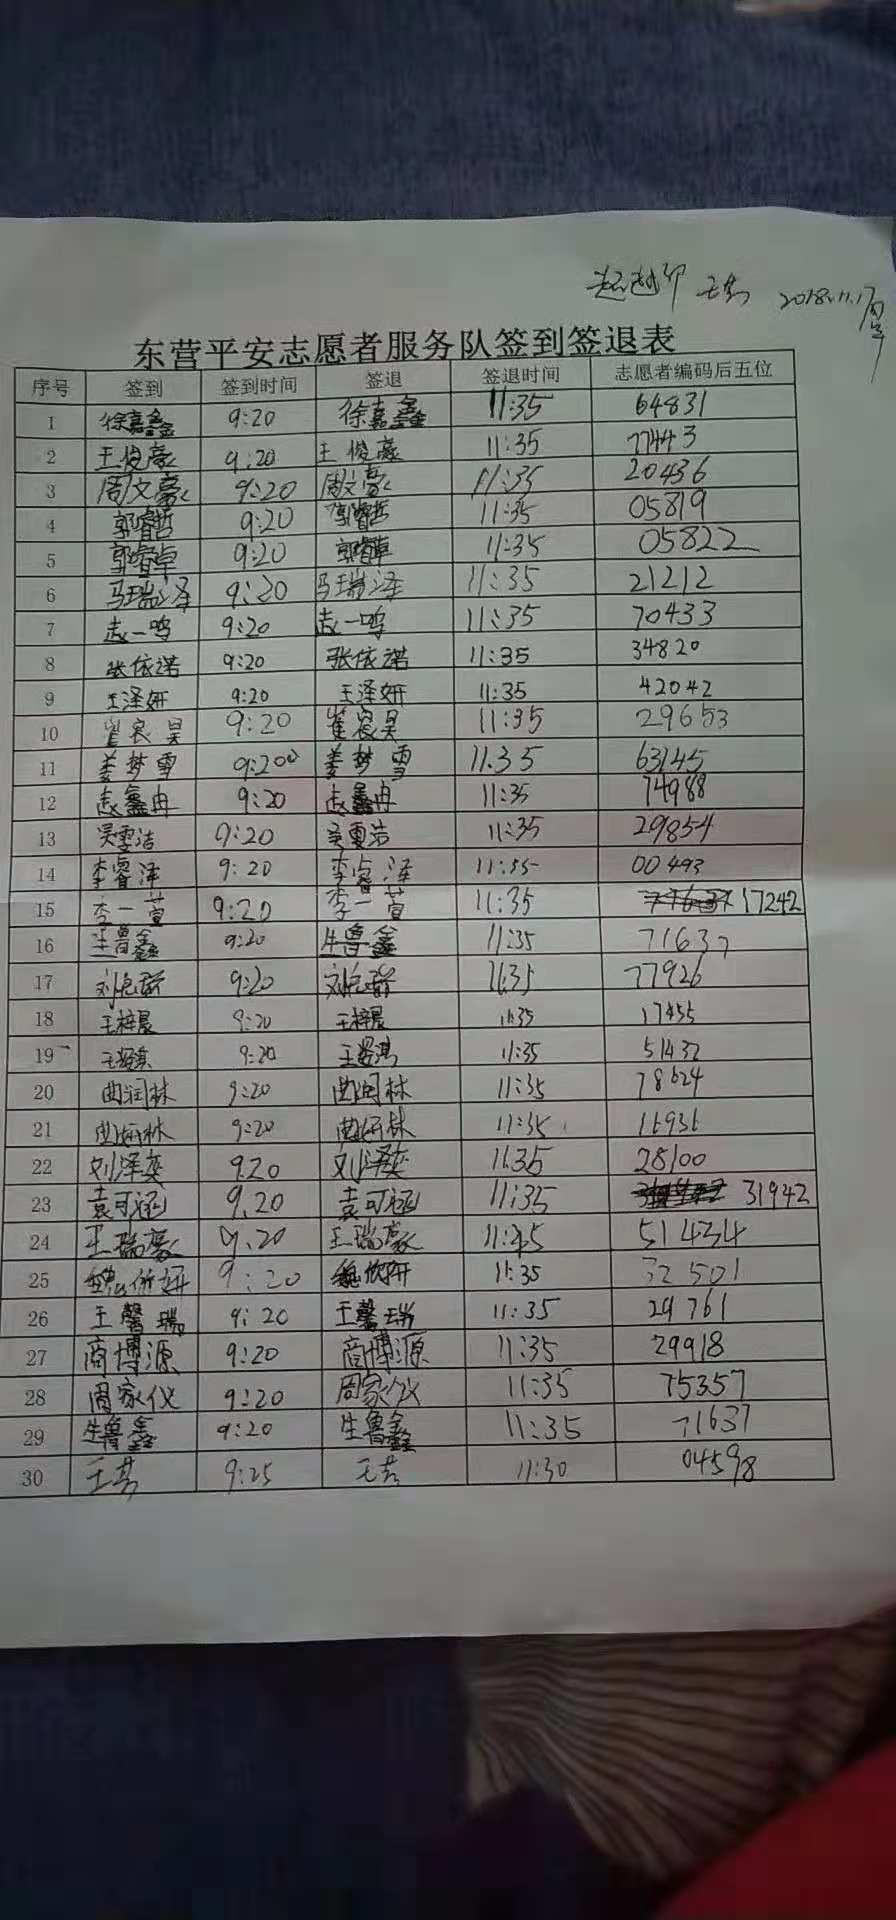 王芸 2018.11.17
周
东营平安志愿者服务队签到签退表
序号 签到 签到时间 签退 签退时间 志愿者编码后五位
1 徐嘉鑫 9:20 徐嘉鑫 11:35 64831
2 王俊豪 9:20 王俊豪 11:35 77443
3 周文豪 9:20 周文豪 11:35 20436
4 郭睿哲 9:20 郭睿哲 11:35 05819
5 郭睿卓 9:20 郭睿卓 11:35 05822
6 马瑞泽 9:20 马瑞泽 11:35 21212
7 赵一鸣 9:20 赵一鸣 11:35 70433
8 张依诺 9:20 张依诺 11:35 34820
9 王泽妍 9:20 王泽妍 11:35 42042
10 崔宸昊 9:20 崔宸昊 11:35 29653
11 姜梦雪 9:20 姜梦雪 11.35 63145
12 赵鑫冉 9:20 赵鑫冉 11:35 74988
13 吴雯洁 9:20 吴雯洁 11:35 29854
14 李睿泽 9:20 李睿泽 11:35 00493
15 李一萱 9:20 李一萱 11:35 17242
16 生鲁鑫 9:20 生鲁鑫 11:35 71637
17 9:20 11:35 77926
18 王梓晨 9:20 王梓晨 11:35 17455
19 9:20 11:35 51432
20 曲润林 9:20 曲润林 11:35 78624
21 曲妍林 9:20 曲妍林 11:35 16936
22 刘泽奕 9.20 刘泽奕 11:35 28100
23 袁可涵 9.20 袁可涵 11:35 31942
24 王瑞豪 9.20 王瑞豪 11:35 51434
25 魏欣妍 9:20 魏欣妍 11:35 32501
26 王馨瑞 9:20 王馨瑞 11:35 29761
27 商博源 9:20 商博源 11:35 29918
28 周家仪 9:20 周家仪 11:35 75357
29 生鲁鑫 9:20 生鲁鑫 11:35 71637
30 王芸 9:25 王芸 11:30 04598